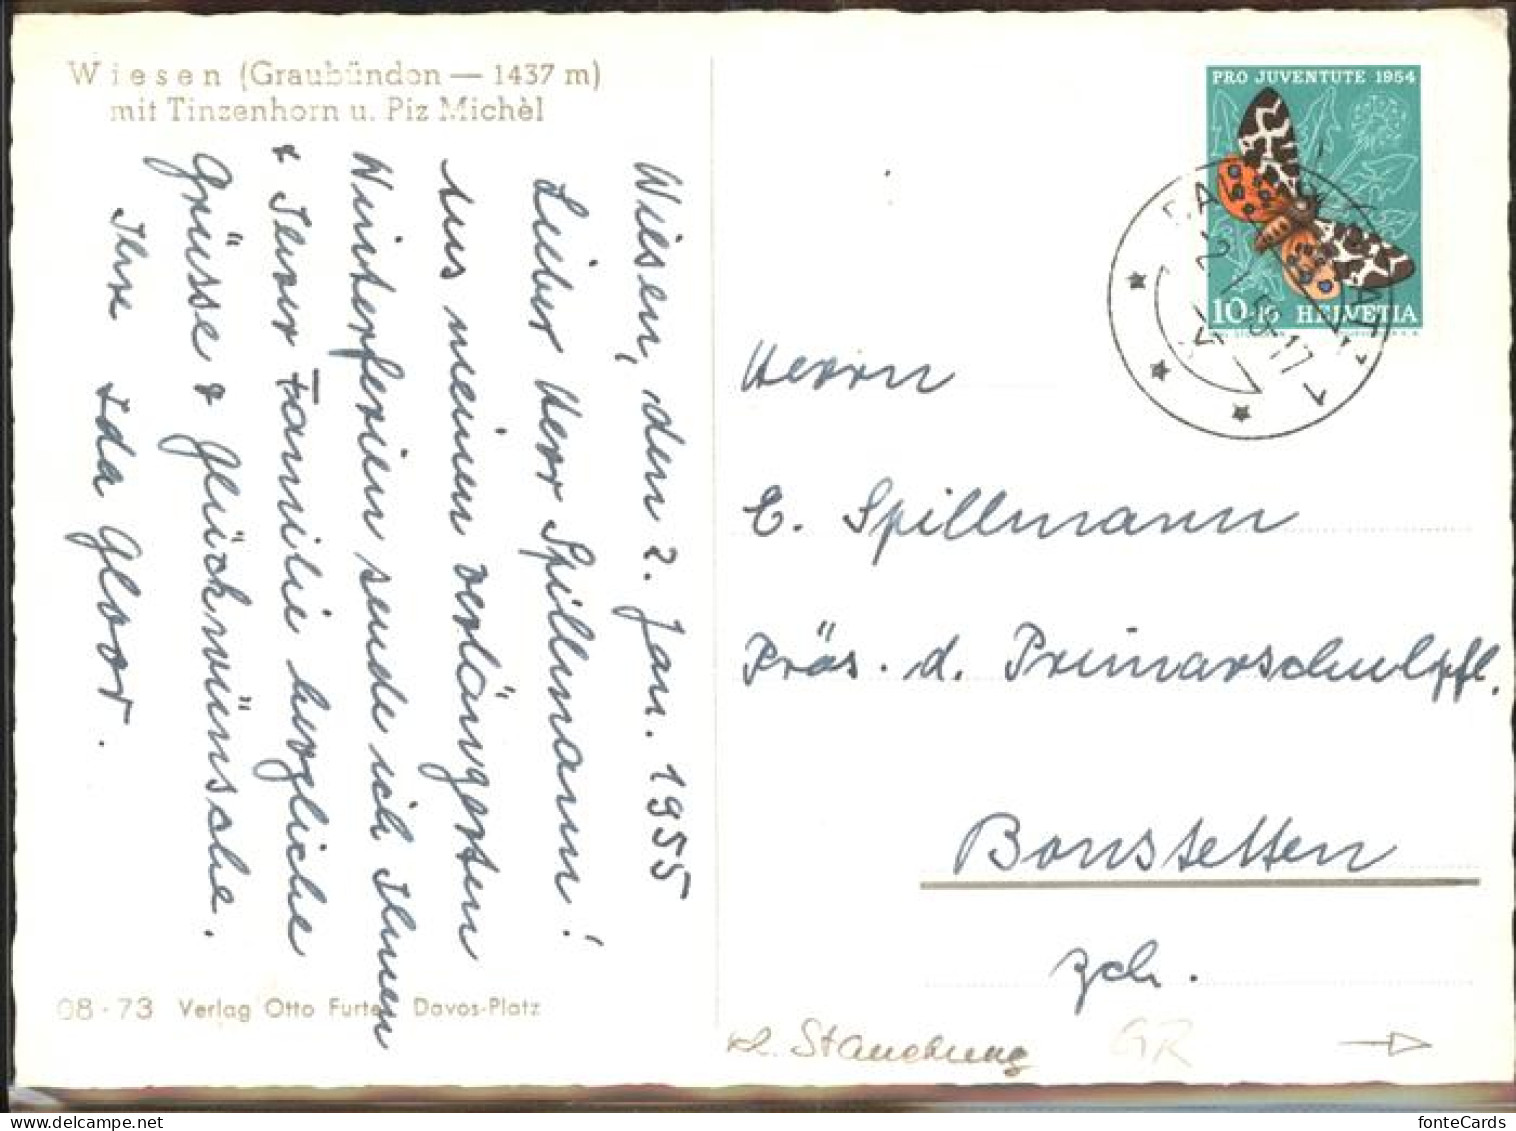 Wiesen (Graubünden — 1437 m)
mit Tinzenhorn u. Piz Michèl
Wiesen, den 2. Jan. 1955
Lieber Herr Spillmann!
Aus meinen verlängerten
Winterferien sende ich Ihnen
& Ihrer Familie herzliche
Grüsse & Glückwünsche.
Ihre Ida Gloor.
08-73 Verlag Otto Furter Davos-Platz
PRO JUVENTUTE 1954
10+10 HELVETIA
Herrn
E. Spillmann
Präs. d. Primarschulpfl.
Bonstetten
Zch.
kl. Stauchung
GR
fonteCards